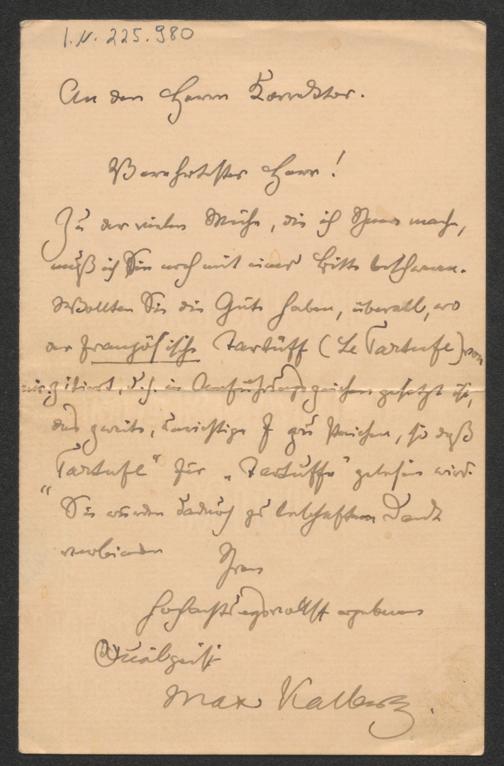 I.N. 225.980
An den Herrn Korrektor.
Verehrtester Herr!
Zu der vielen Mühe, die ich Ihnen mache,
muß ich Sie noch mit einer Bitte beschweren.
Wollten Sie die Güte haben, überall, wo
der französische Tartüff (Le Tartufe) von
mir zitiert, d.h. in Anführungszeichen gesetzt ist,
das zweite, unrichtige f zu streichen, so daß
„Tartufe“ für „Tartuffe“ gelesen wird.
Sie würden dadurch zu lebhaftem Dank
verbinden Ihren
hochachtungsvollst ergebenen
Quälgeist
Max Kalbeck.